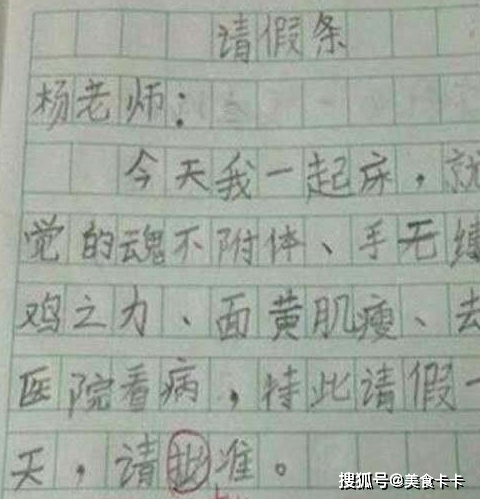 请假条
杨老师：
今天我一起床，就
觉的魂不附体、手无缚
鸡之力、面黄肌瘦、去
医院看病，特此请假一
天，请批准。
搜狐号@美食卡卡